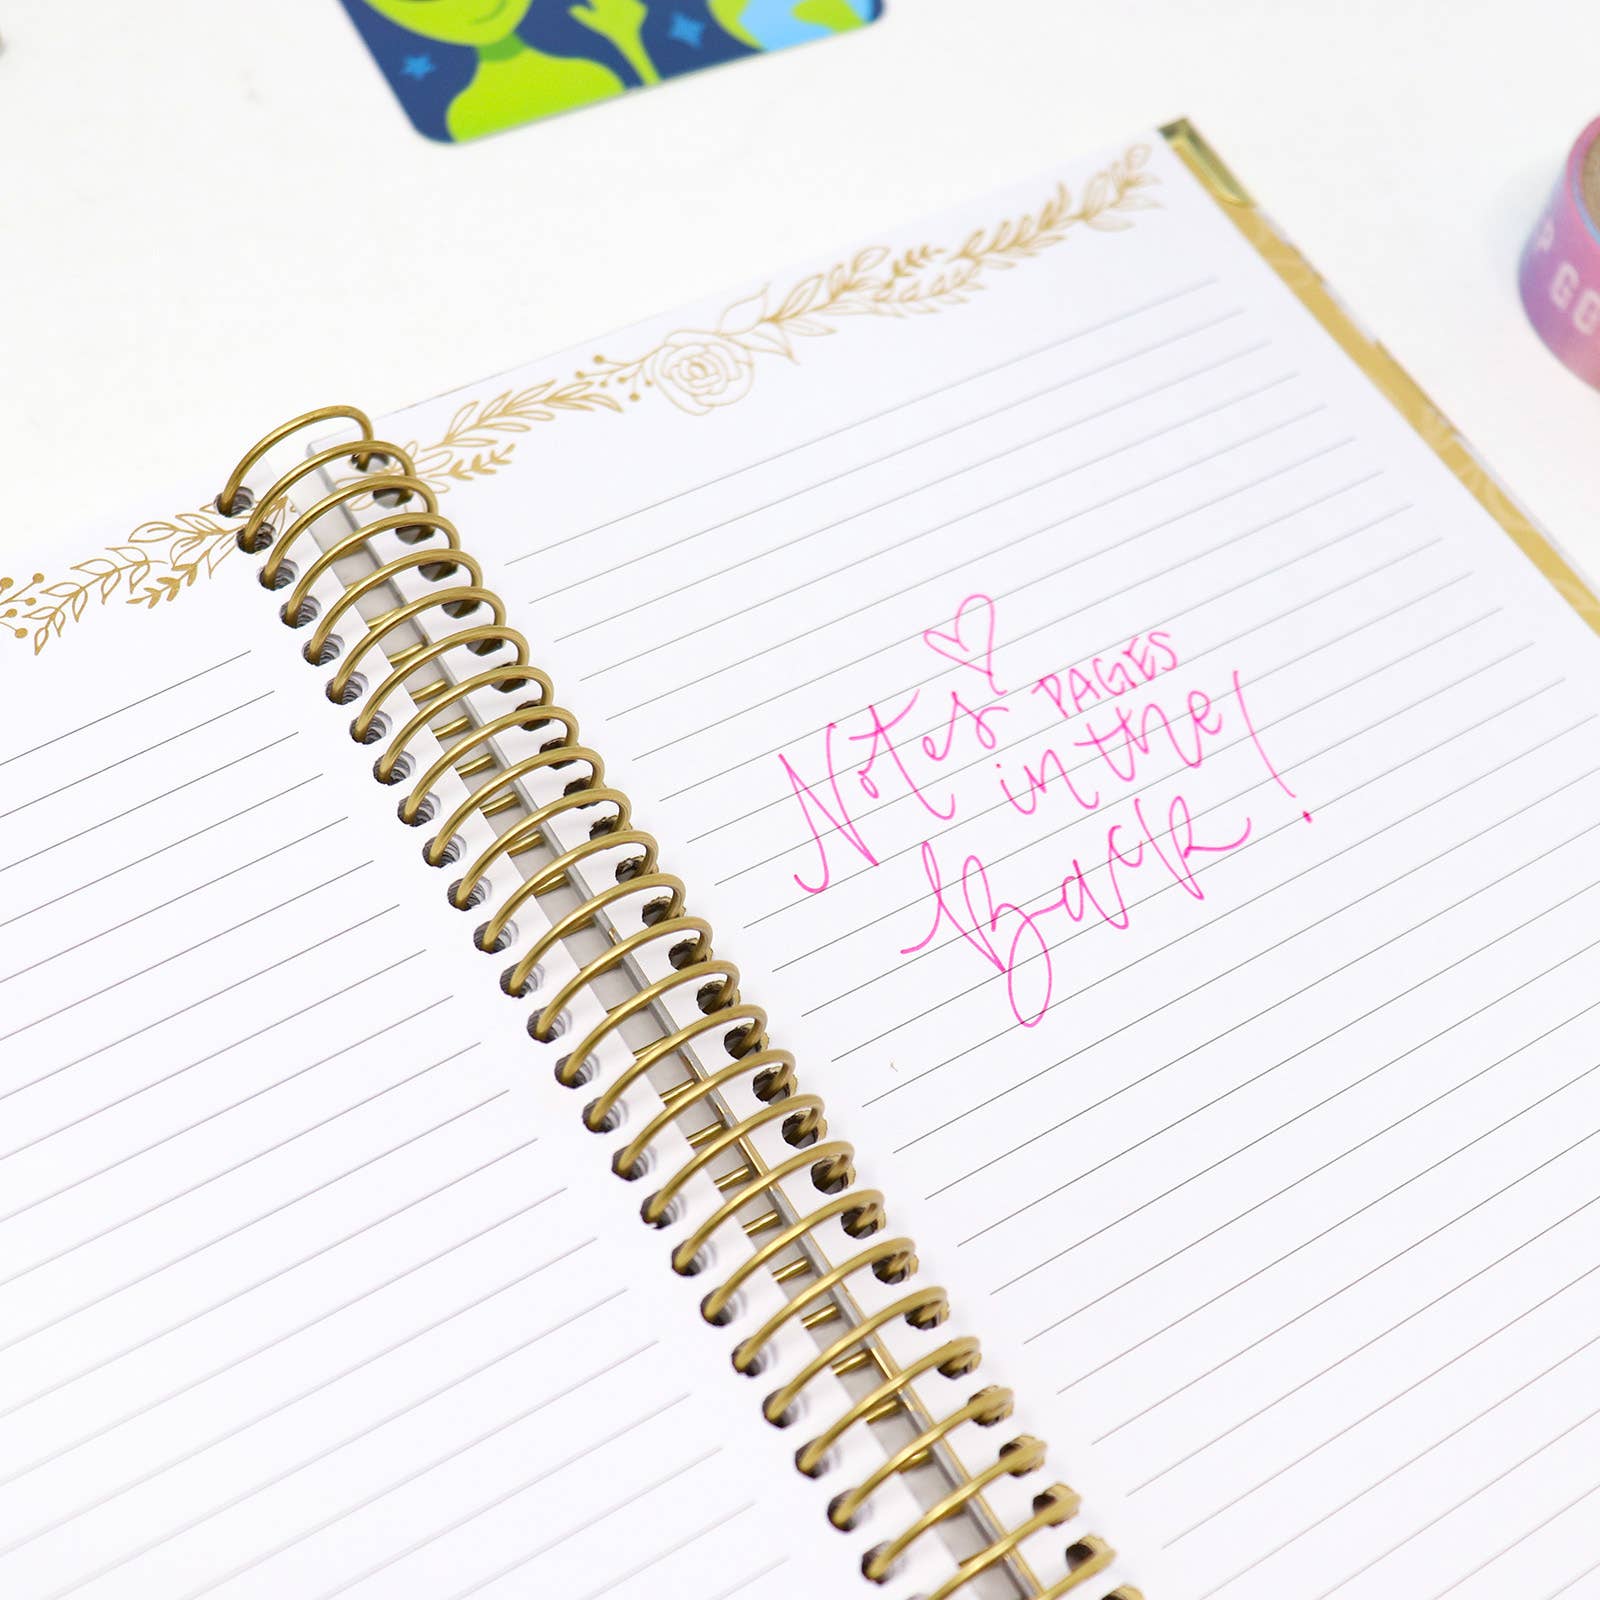 Notes PAGES
in the
Back!
P GOO